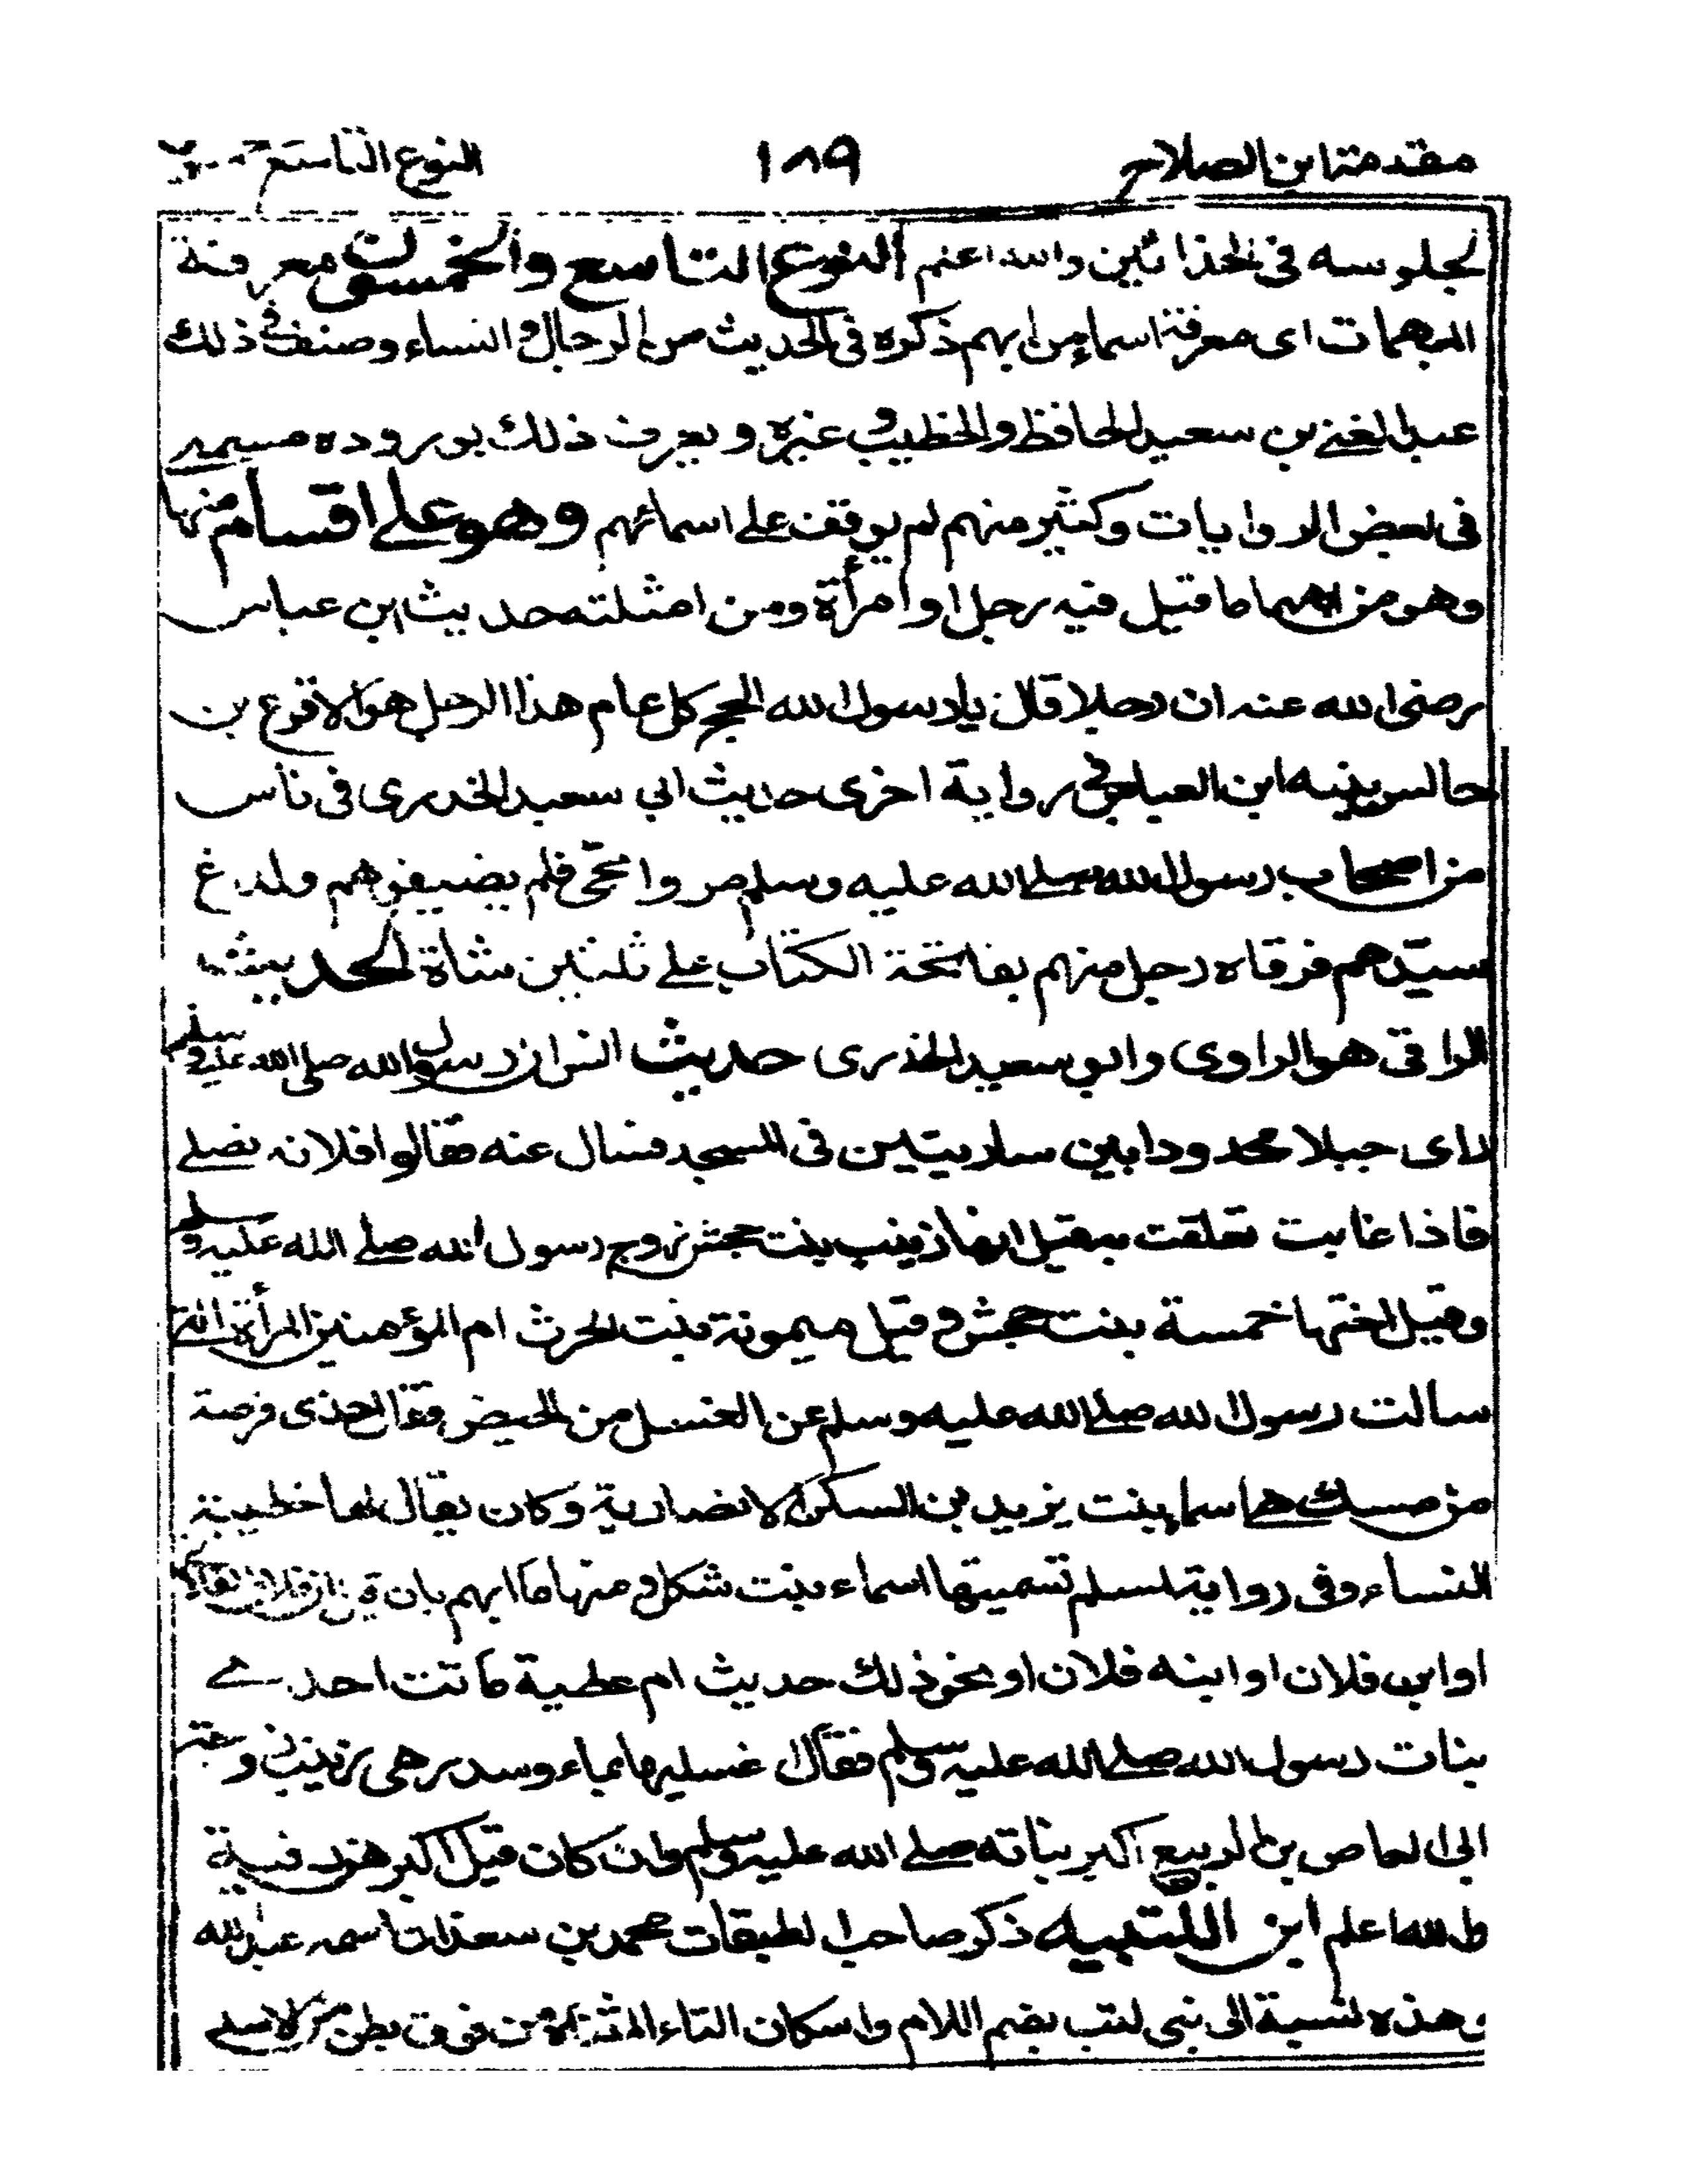 مقدمة ابن الصلاح ١٨٩ النوع التاسع
لجلوسه فى الحذائين والله اعلم النوع التاسع والخمسون معرفة
المبهمات اى معرفة اسماء من ابهم ذكره فى الحديث من الرجال و النساء وصنف فى ذلك
عبد الغنى بن سعيد الحافظ والخطيب و غيره و يعرف ذلك بوروده مسمى
فى بعض الروايات وكثير منهم لم يوقف على اسمائهم وهو على اقسام منها
وهو من ابهمها ما قيل فيه رجل او امرأة ومن امثلته حديث ابن عباس
رضى الله عنه ان رجلا قال يا رسول الله الحج كل عام هذا الرجل هو الاقرع بن
حابس بينه ابن العباس فى رواية اخرى حديث ابي سعيد الخدرى فى ناس
من اصحاب رسول الله صلے الله عليه وسلم مروا بحى فلم يضيفوهم ولدغ
سيّدهم فرقاه رجل منهم بفاتحة الكتاب علے ثلثين شاة الحديث
الراقى هو الراوى وابو سعيد الخدرى حديث انس ان رسول الله صلى الله عليه و سلم
راى حبلا ممدودا بين ساريتين فى المسجد فسال عنه فقالوا فلانه تصلے
فاذا غابت تعلقت به قيل انها زينب بنت جحش زوج رسول الله صلے الله عليه و سلم
وقيل اختها حمنة بنت جحش و قيل ميمونة بنت الحرث ام المؤمنين المرأة التى
سالت رسول الله صلے الله عليه وسلم عن الغسل من الحيض فقال خذى فرصة
من مسك هى اسماء بنت يزيد بن السكن الانصارية وكان يقال لها خطيبة
النساء وفى رواية لمسلم تسميتها اسماء بنت شكل و منها ما ابهم بان قيل ابن فلان
او ابن فلان او ابنه فلان او نحو ذلك حديث ام عطية ماتت احدے
بنات رسول الله صلے الله عليه وسلم فقال غسليها بماء وسدر هى زينب
ابى العاص بن الربيع اكبر بناته صلے الله عليه وسلم وان كان قيل اكبرهن رقية
والله اعلم ابن اللتبيه ذكر صاحب الطبقات محمد بن سعد ان اسمه عبد الله
و هذه نسبة الى بنى لتب بضم اللام واسكان التاء المثناة من فوق بطن من الاسد